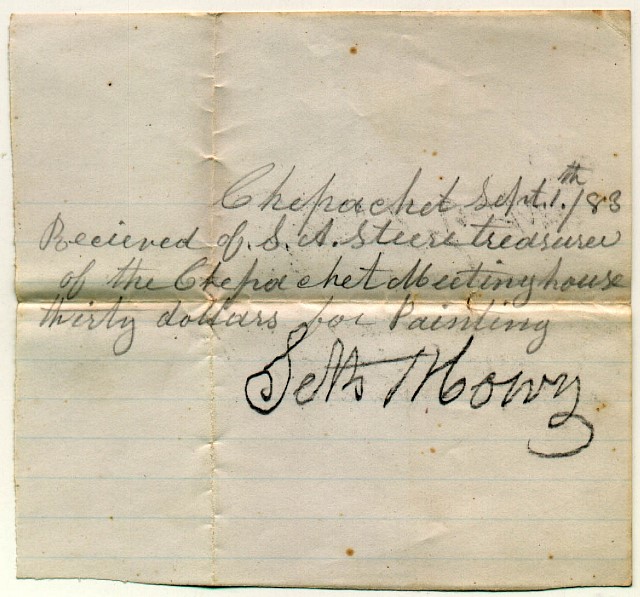 Chepachet Sept. 1.th/83
Recieved of S. A. Steere treasurer
of the Chepachet Meetinghouse
thirty dollars for Painting
Seth Mowry